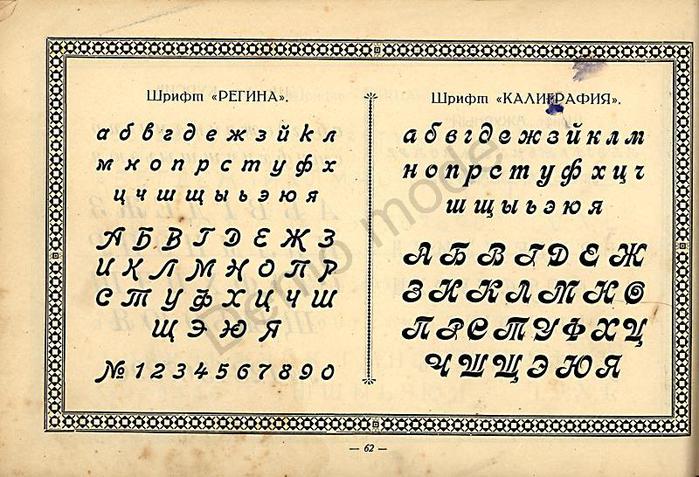 Шрифт «РЕГИНА».
а б в г д е ж з й к л
м н о п р с т у ф х
ц ч ш щ ы ь э ю я
А Б В Г Д Е Ж З
И К Л М Н О П Р
С Т У Ф Х Ц Ч Ш
Щ Э Ю Я
№ 1 2 3 4 5 6 7 8 9 0
Шрифт «КАЛИГРАФИЯ».
а б в г д е ж з й к л м
н о п р с т у ф х ц ч
ш щ ы ь э ю я
А Б В Г Д Е Ж
З И К Л М Н О
П Р С Т У Ф Х Ц
Ч Ш Щ Э Ю Я
— 62 —
Demo mode